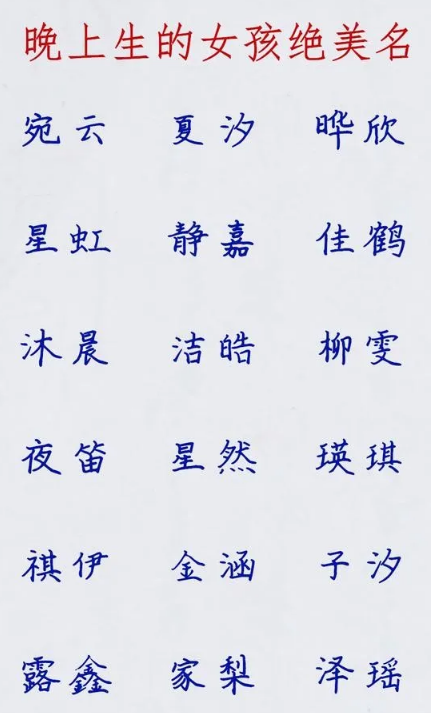 晚上生的女孩绝美名
宛云 夏汐 晔欣
星虹 静嘉 佳鹤
沐晨 洁皓 柳雯
夜笛 星然 瑛琪
祺伊 金涵 子汐
露鑫 家梨 泽瑶